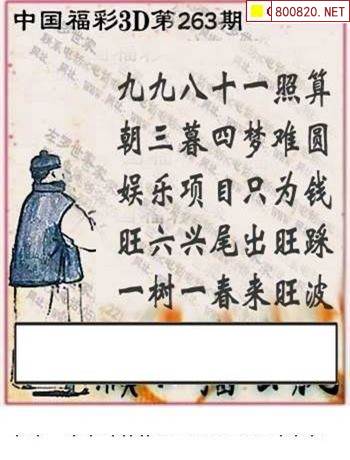 中国福彩3D第263期
800820.NET
九九八十一照算
朝三暮四梦难圆
娱乐项目只为钱
旺六兴尾出旺踩
一树一春来旺波